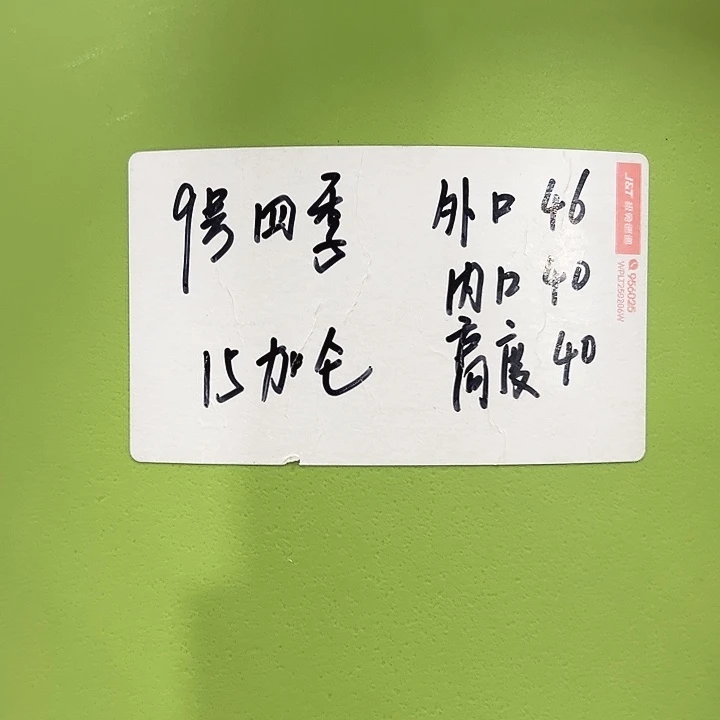 9号四季
15加仑
外口 46
内口 40
高度 40
J&T 极兔速递
956025
WPLT250206W